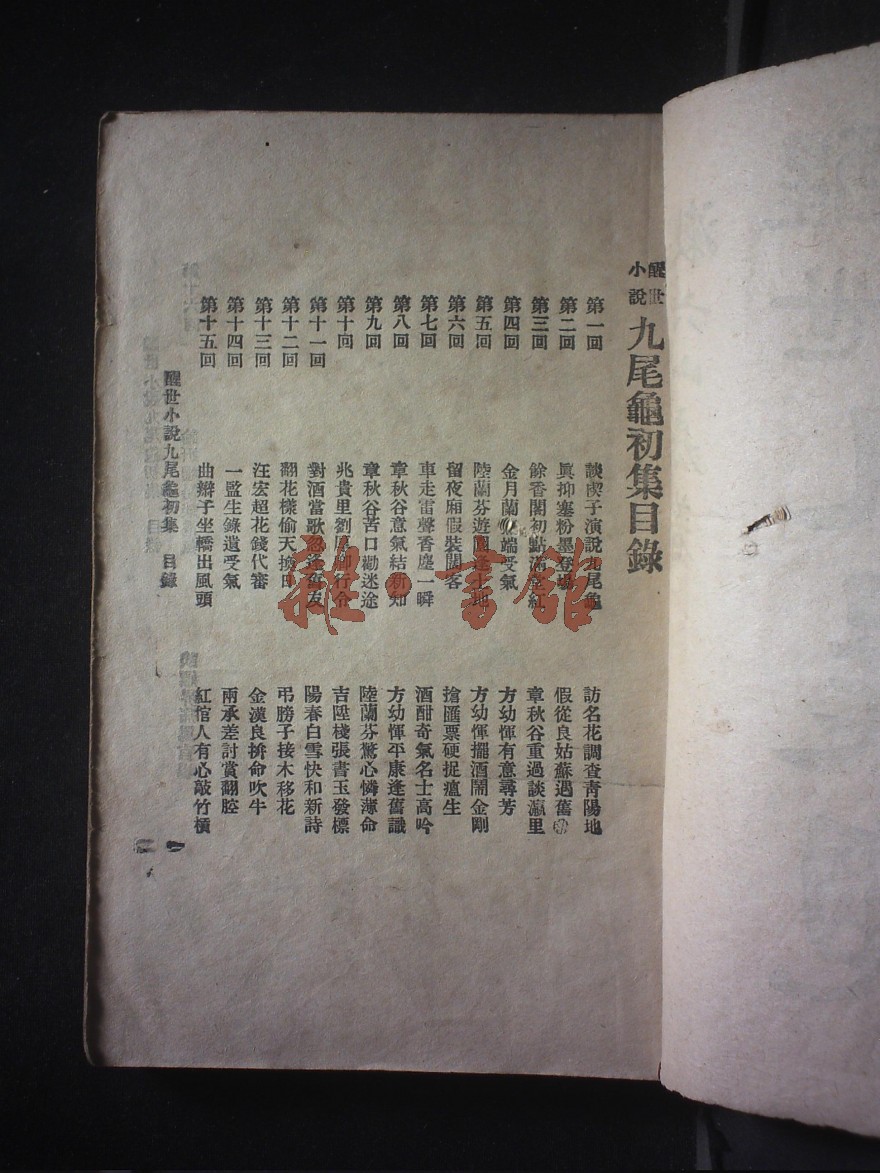 醒世小說 九尾龜初集目錄
第一回 談楔子演說九尾龜 訪名花調查青陽地
第二回 眞抑塞粉墨登場 假從良姑蘇遇舊
第三回 餘香閣初點滿堂紅 章秋谷重過談瀛里
第四回 金月蘭 端受氣 方幼惲有意尋芳
第五回 陸蘭芬遊園逢土地 方幼惲擺酒鬧金剛
第六回 留夜廂假裝闊客 搶匯票硬捉瘟生
第七回 車走雷聲香塵一瞬 酒酣奇氣名士高吟
第八回 章秋谷意氣結新知 方幼惲平康逢舊識
第九回 章秋谷苦口勸迷途 陸蘭芬驚心憐薄命
第十回 兆貴里劉厚卿行令 吉陞棧張書玉發標
第十一回 對酒當歌忽逢舊友 陽春白雪快和新詩
第十二回 翻花樣偷天換日 弔膀子接木移花
第十三回 汪宏超花錢代審 金漢良拚命吹牛
第十四回 一監生錄遺受氣 兩承差討賞翻腔
第十五回 曲辮子坐轎出風頭 紅倌人有心敲竹槓
醒世小說九尾龜初集 目錄
一
雜·書館